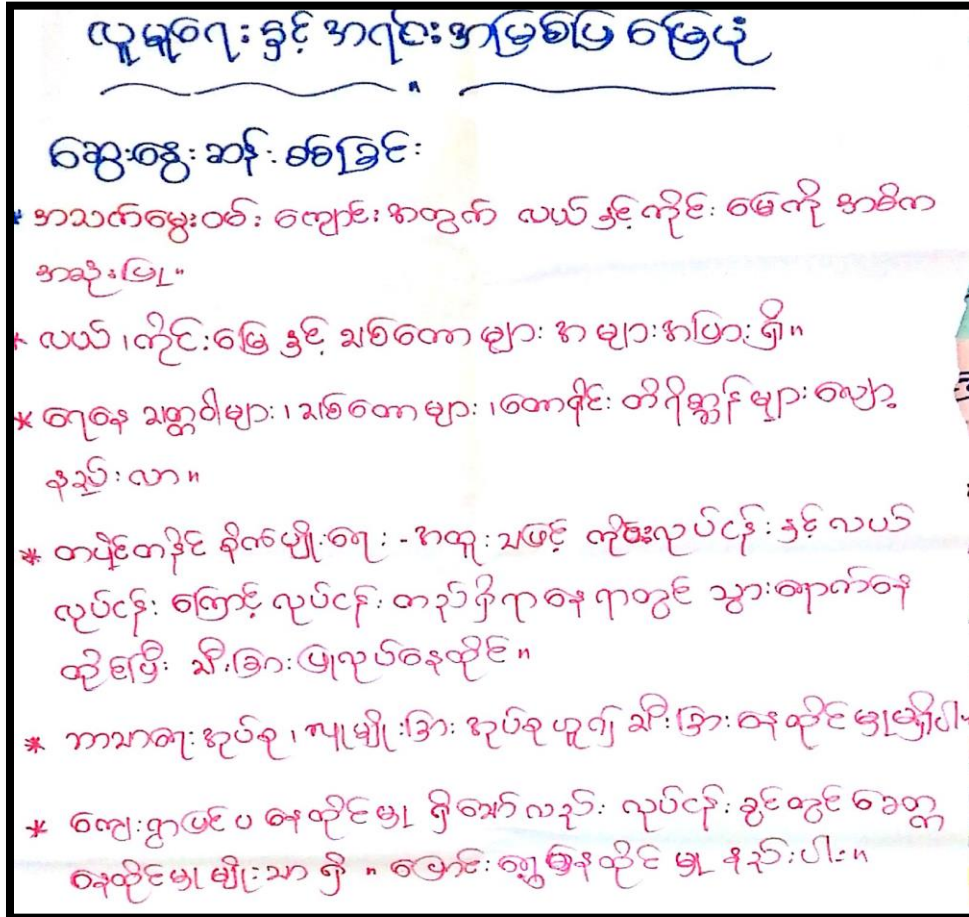 လူမှုရေး နှင့် အရင်းအမြစ်ပြ မြေပုံ
ဆွေးနွေး ဆန်းစစ်ခြင်း
* အသက်မွေးဝမ်း ကျောင်း အတွက် လယ် နှင့် ကိုင်း မြေကို အဓိက
အသုံးပြု။
* လယ်၊ ကိုင်းမြေ နှင့် သစ်တော များ အများအပြား ရှိ။
* ရေနေ သတ္တဝါများ၊ သစ်တော များ၊ တောရိုင်း တိရိစ္ဆာန် များ လျော့
နည်း လာ။
* တပိုင်တနိုင် စိုက်ပျိုးရေး - အထူး သဖြင့် ကိုင်းလုပ်ငန်း နှင့် လယ်
လုပ်ငန်း ကြောင့် လုပ်ငန်း တည်ရှိရာ နေ ရာတွင် သွားရောက်နေ
ထိုင်ပြီး သီးခြား ပြုလုပ်နေထိုင်။
* ဘာသာရေး အုပ်စု၊ လူမျိုးခြား အုပ်စု ဟူ၍ သီးခြား နေထိုင် မှုမရှိပါ။
* ကျေးရွာပြင်ပ နေထိုင်မှု ရှိသော်လည်း လုပ်ငန်း ခွင်တွင် ခေတ္တ
နေထိုင်မှု မျိုးသာ ရှိ။ ပြောင်းရွှေ့နေထိုင် မှု နည်းပါး။